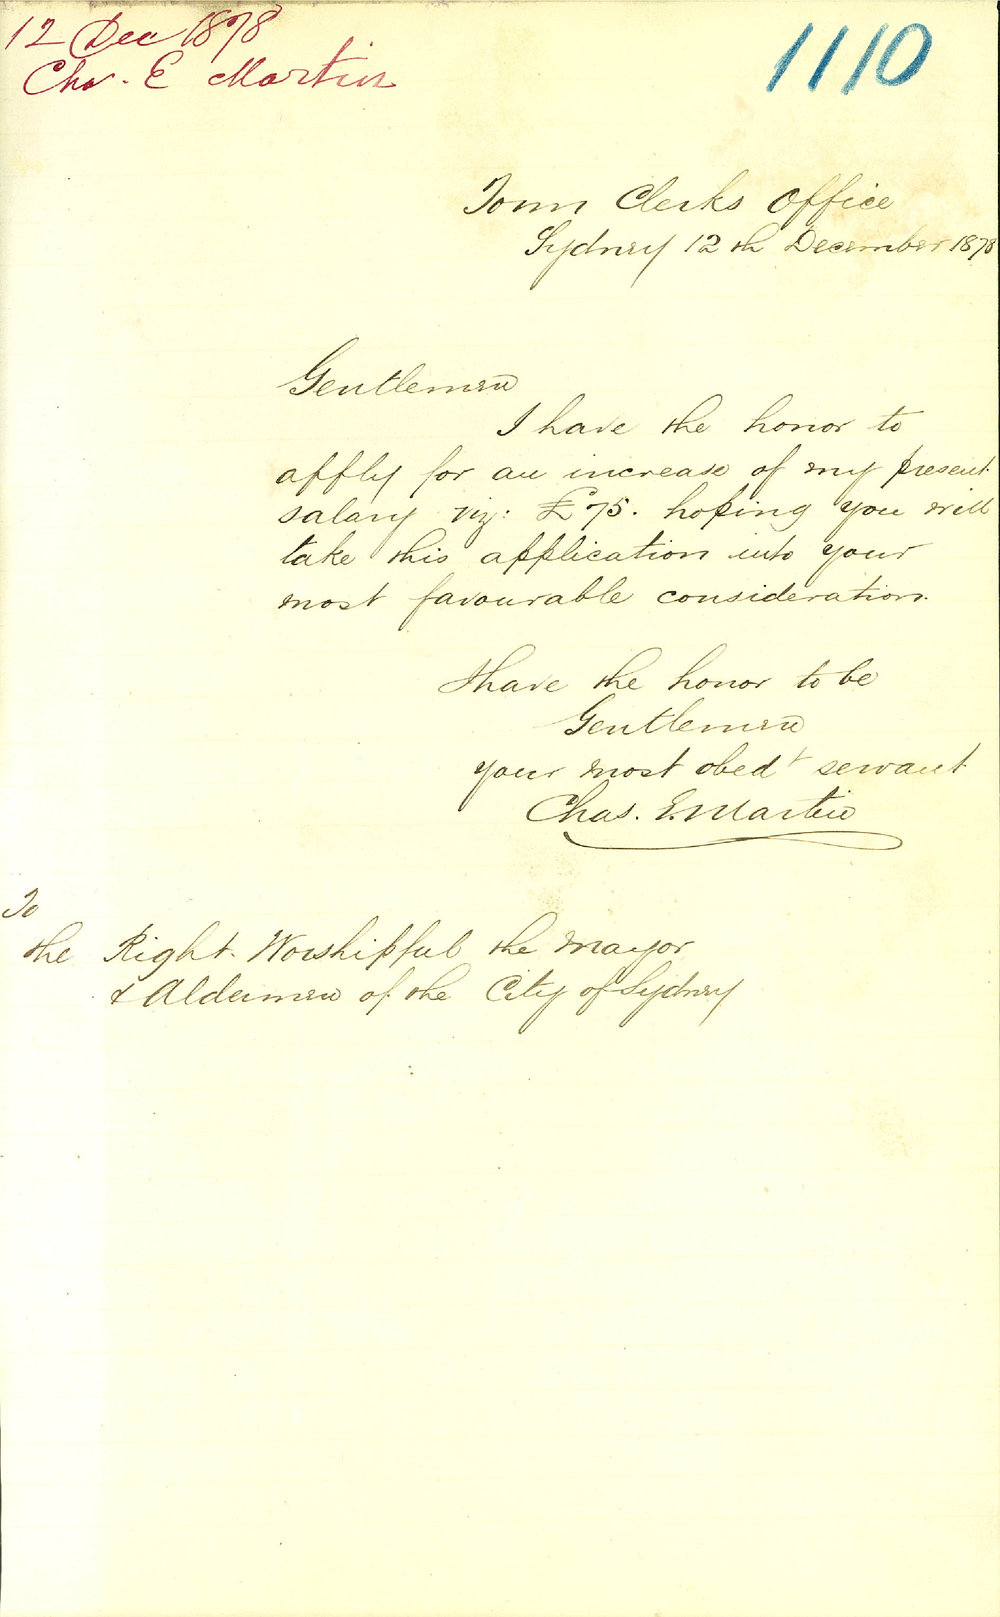 12 Dec 1878
Chs. E Martin
1110
Town Clerks Office
Sydney 12th December 1878
Gentlemen
I have the honor to
apply for an increase of my present
salary viz: £75. hoping you will
take this application into your
most favourable consideration.
I have the honor to be
Gentlemen
your most obedt servant
Chas. E. Martin
To
the Right Worshipful the Mayor
& Aldermen of the City of Sydney